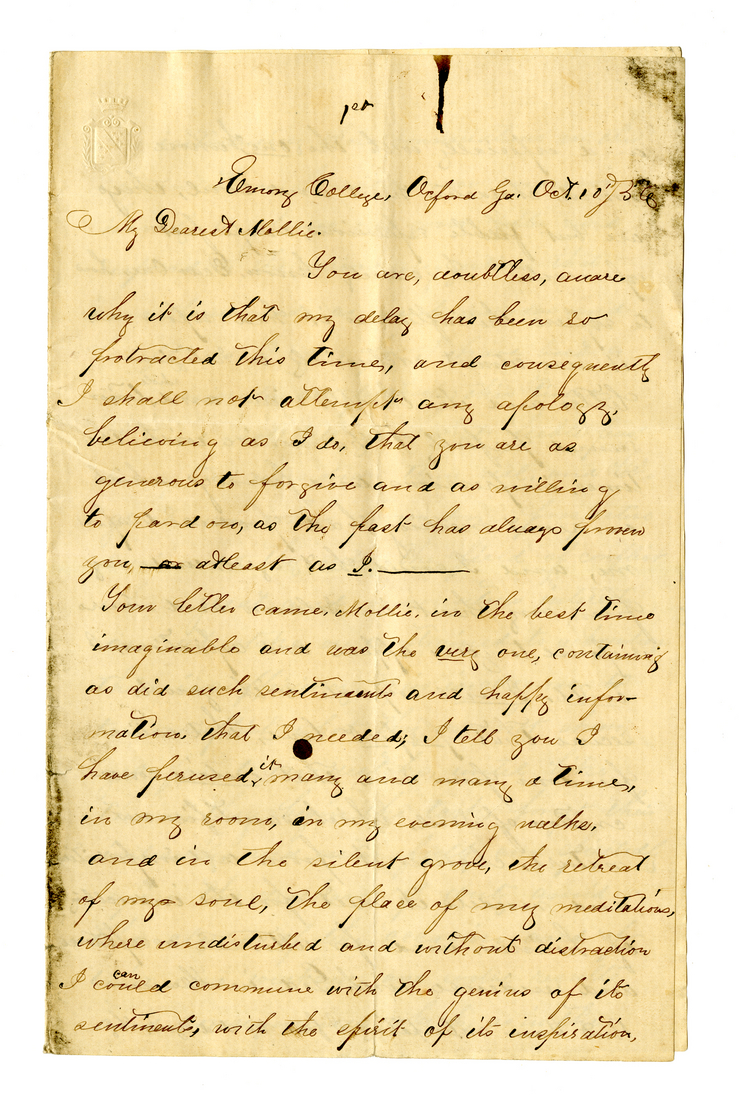 1st
Emory College, Oxford Ga. Oct. 10th / 56
My Dearest Mollie.
You are, doubtless, aware
why it is that my delay has been so
protracted this time, and consequently
I shall not attempt any apology,
believing as I do, that you are as
generous to forgive and as willing
to pardon, as the past has always proven
you, as atleast as I.
Your letter came, Mollie, in the best time
imaginable and was the very one, containing
as did such sentiments and happy infor-
mation that I needed; I tell you I
have perused it many and many a time,
in my room, in my evening walks,
and in the silent grove, the retreat
of my soul, the place of my meditations,
where undisturbed and without distraction
I can could commune with the genius of its
sentiments, with the spirit of its inspiration,